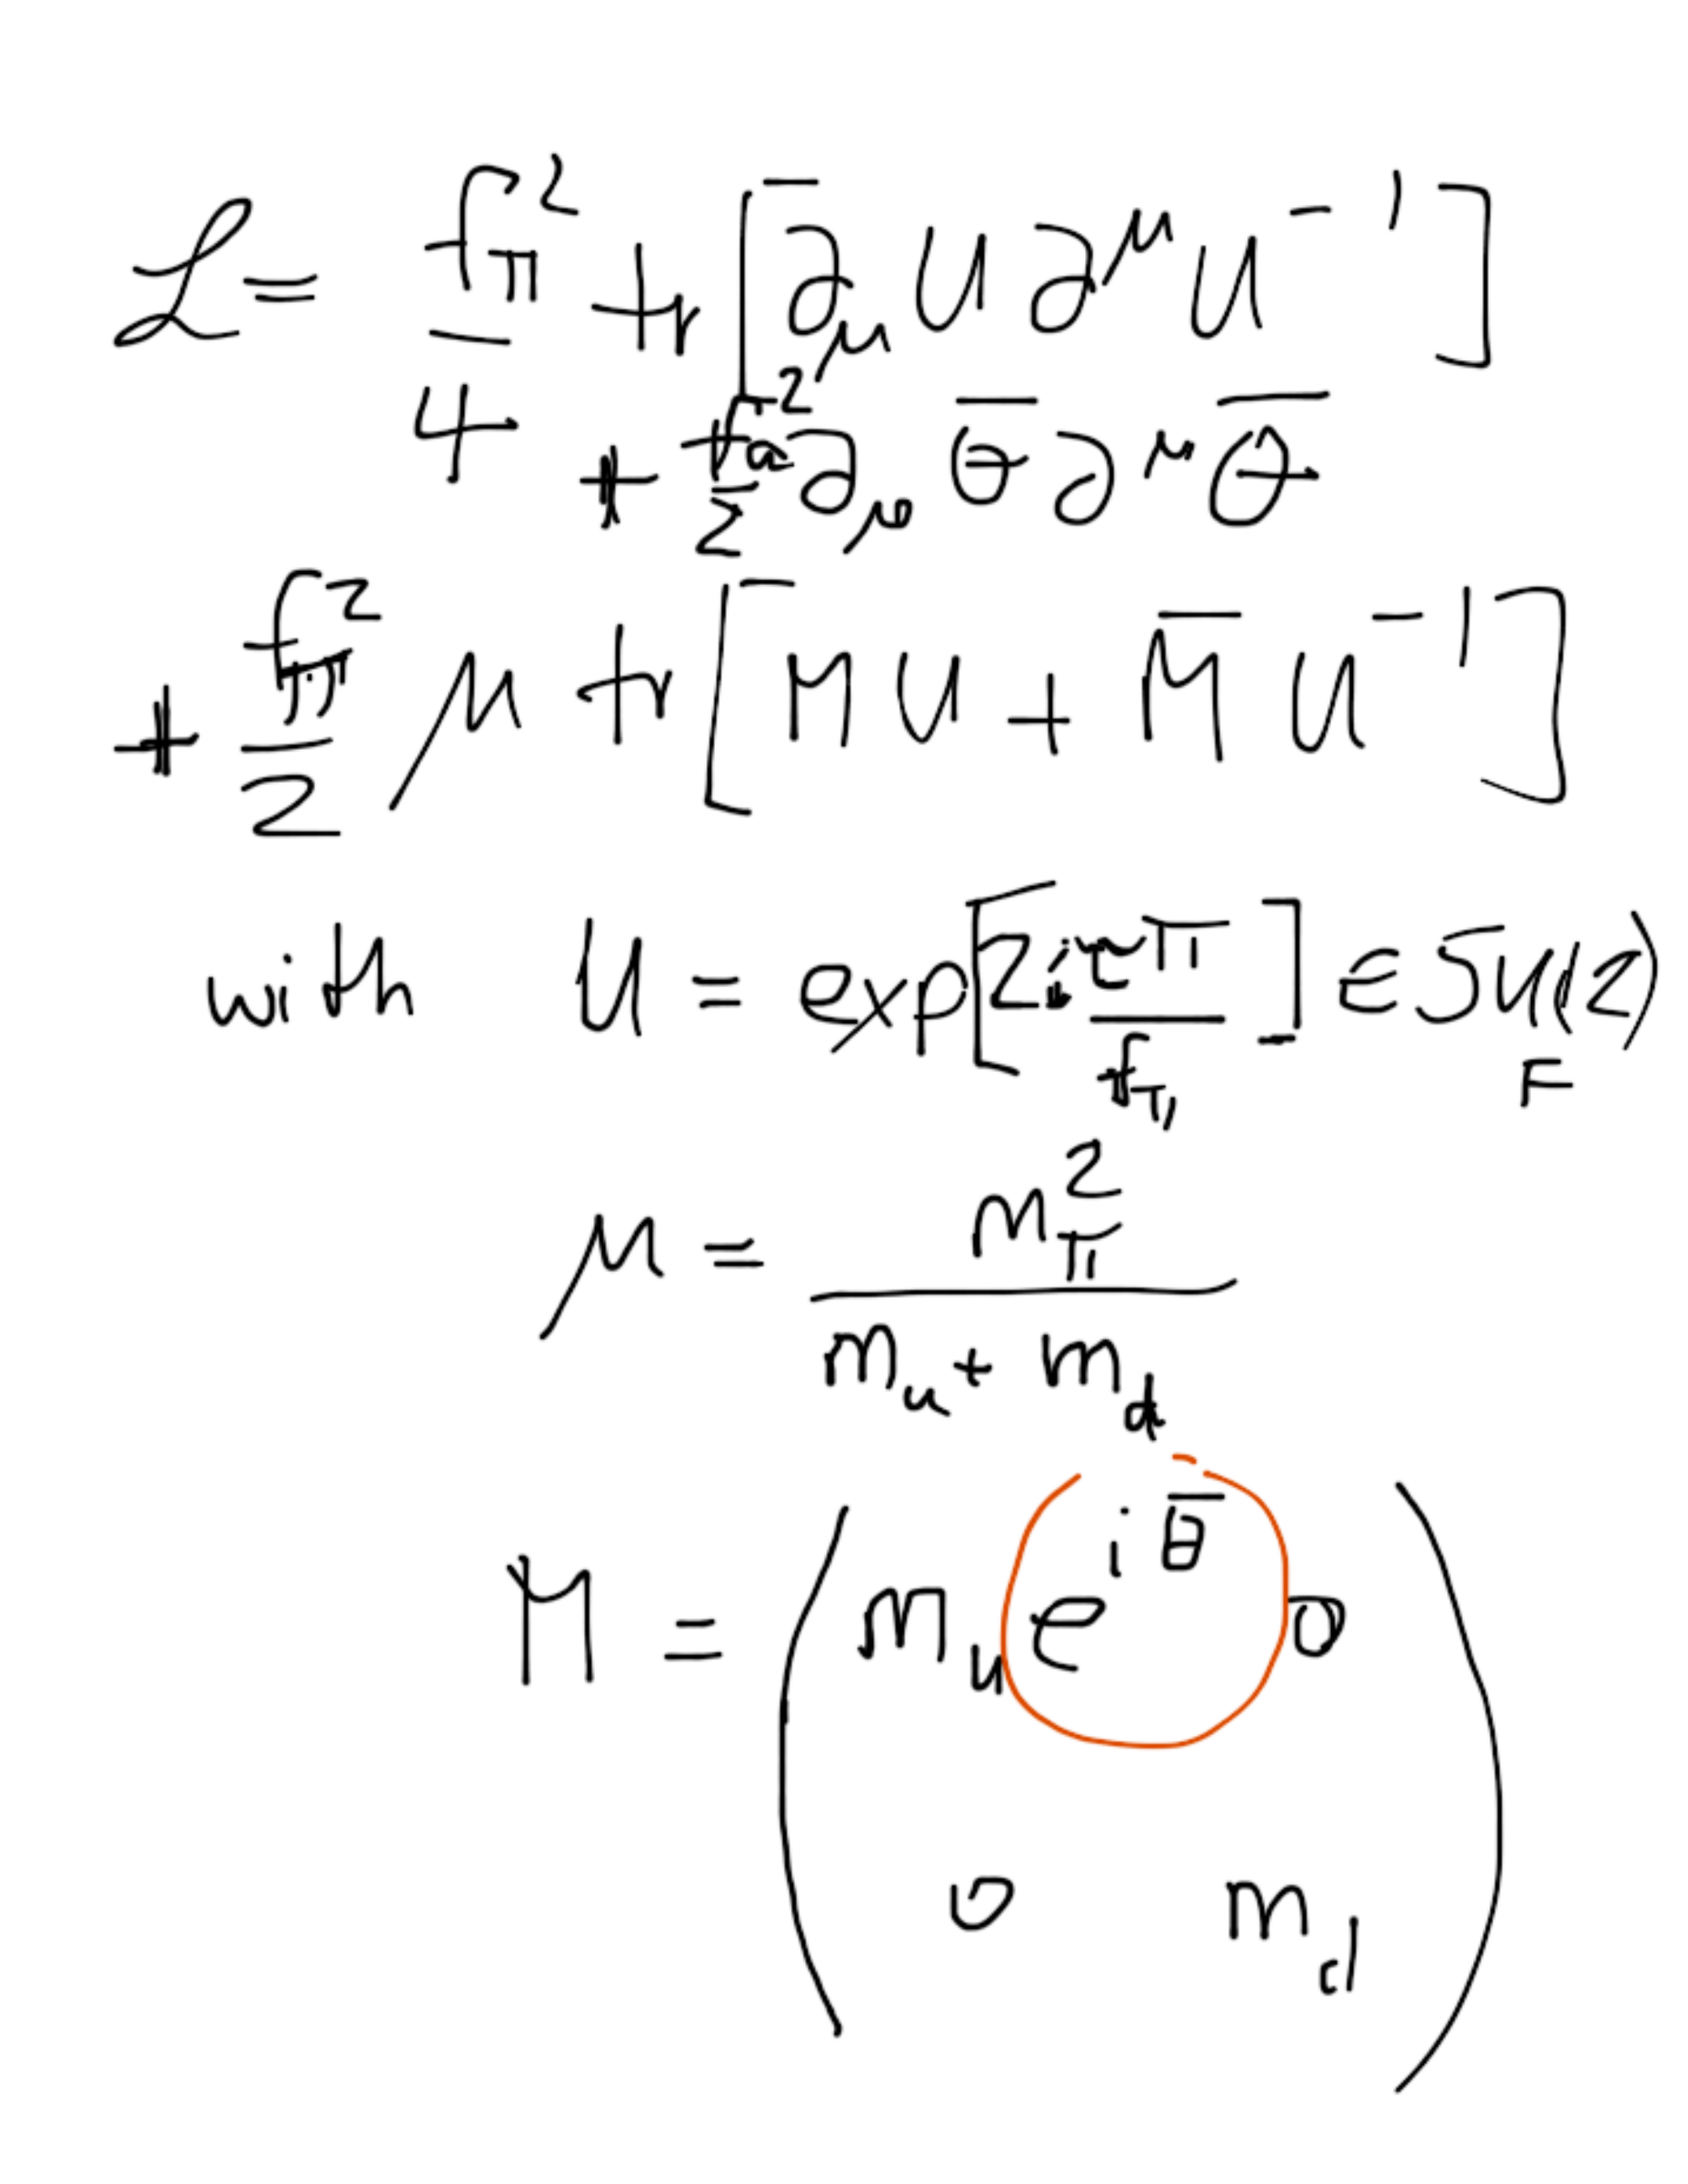 ℒ = f_π²/4 tr[∂_μ U ∂^μ U⁻¹]
+ f_a²/2 ∂_μ θ̄ ∂^μ θ̄
+ f_π²/2 μ tr[M U + M̄ U⁻¹]
with U = exp[2i π/f_π] ∈ SU(2)_F
μ = m_π²/(m_u + m_d)
M = ( m_u e^{iθ̄} 0
0 m_d )